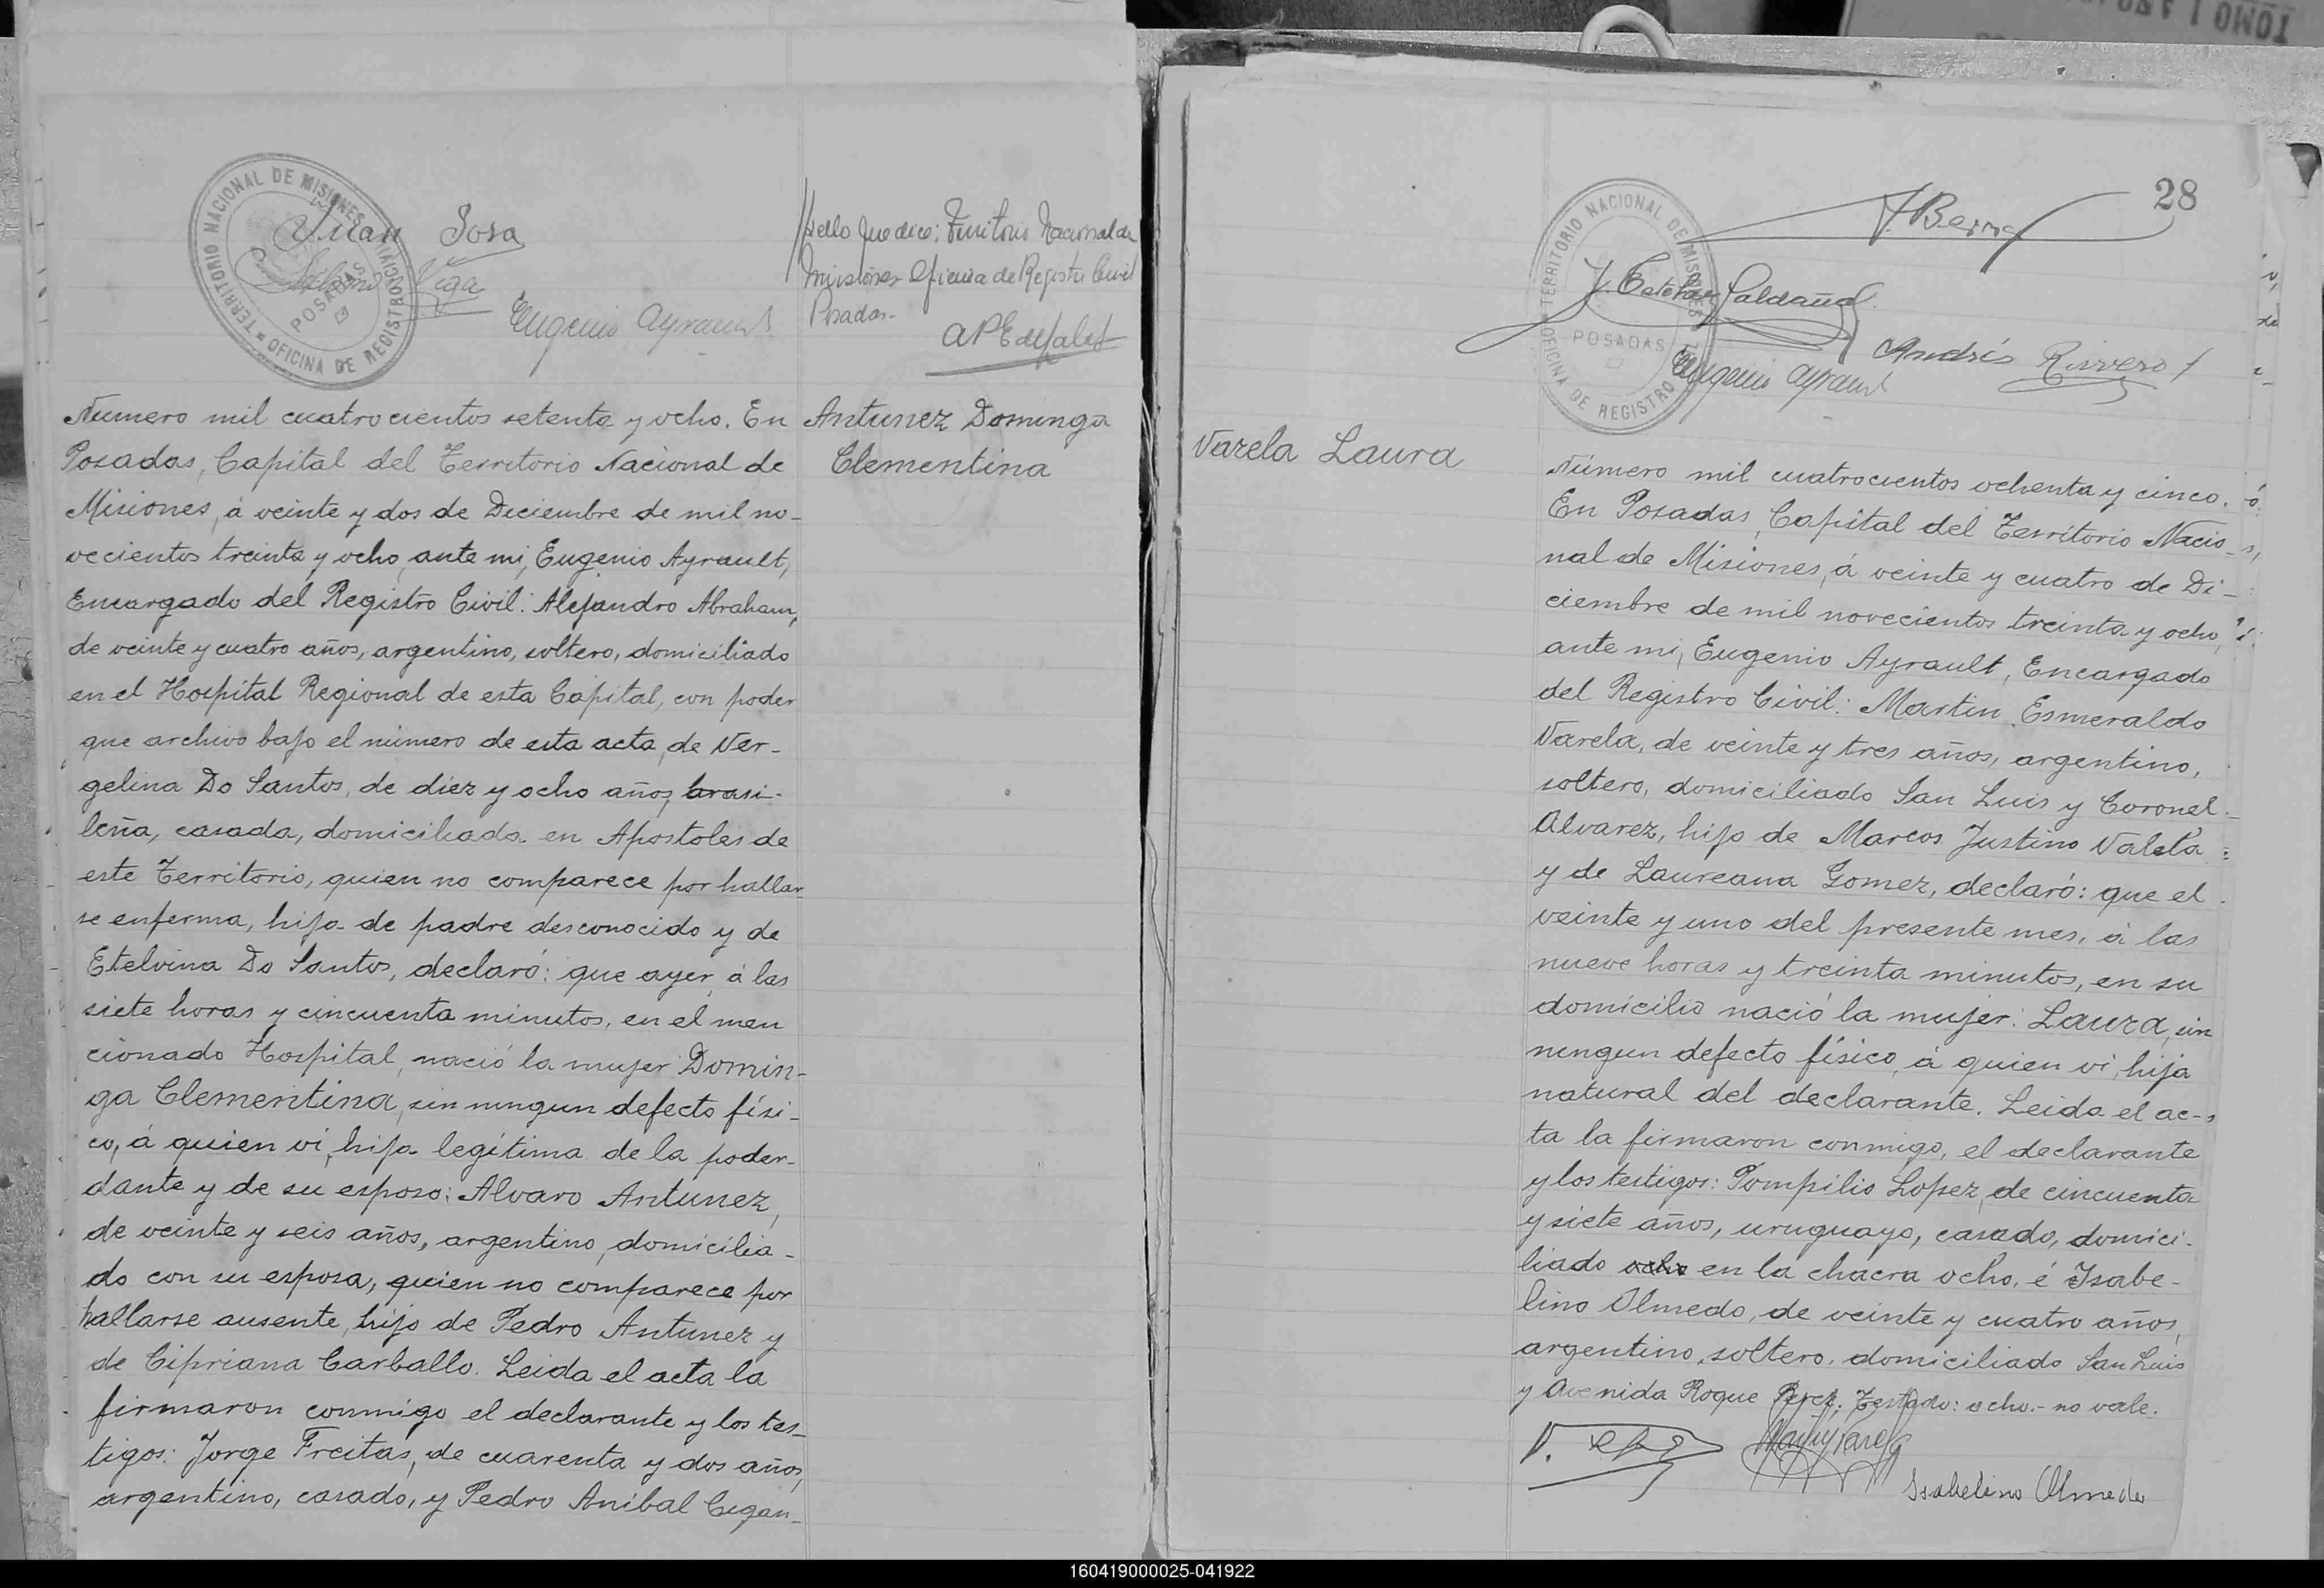 TERRITORIO NACIONAL DE MISIONES
OFICINA DE REGISTRO CIVIL
POSADAS
Juan Sosa
Vega
Eugenio Ayrault
sello que dice: Territorio Nacional de
Misiones Oficina de Registro Civil
Posadas-
Numero mil cuatrocientos setenta y ocho. En
Posadas, Capital del Territorio Nacional de
Misiones, á veinte y dos de Diciembre de mil no-
vecientos treinta y ocho, ante mi, Eugenio Ayrault,
Encargado del Registro Civil: Alejandro Abraham,
de veinte y cuatro años, argentino, soltero, domiciliado
en el Hospital Regional de esta Capital, con poder
que archivo bajo el número de esta acta, de Ver-
gelina Do Santos, de diez y ocho años, brasi-
leña, casada, domiciliada en Apostoles de
este Territorio, quien no comparece por hallar-
se enferma, hija de padre desconocido y de
Etelvina Do Santos, declaró: que ayer, á las
siete horas y cincuenta minutos, en el men
cionado Hospital, nació la mujer Domin-
ga Clementina, sin ningun defecto físi-
co, á quien ví, hija legítima de la poder-
dante y de su esposo: Alvaro Antunez,
de veinte y seis años, argentino, domicilia-
do con su esposa, quien no comparece por
hallarse ausente, hijo de Pedro Antunez y
de Cipriana Carballo. Leida el acta la
firmaron conmigo el declarante y los tes-
tigos: Jorge Freitas, de cuarenta y dos años,
argentino, casado, y Pedro Anibal Cegan-
Antunez Dominga
Clementina
28
TERRITORIO NACIONAL DE MISIONES
OFICINA DE REGISTRO
POSADAS
J. Esteban Saldaña
Andrés Rivero
Eugenio Ayrault
Varela Laura
Número mil cuatrocientos ochenta y cinco.
En Posadas, Capital del Territorio Nacio-
nal de Misiones, á veinte y cuatro de Di-
ciembre de mil novecientos treinta y ocho,
ante mi, Eugenio Ayrault, Encargado
del Registro Civil: Martin Esmeraldo
Varela, de veinte y tres años, argentino,
soltero, domiciliado San Luis y Coronel
Alvarez, hijo de Marcos Justino Valela
y de Laureana Gomez, declaró: que el
veinte y uno del presente mes, á las
nueve horas y treinta minutos, en su
domicilio nació la mujer: Laura, sin
ningun defecto físico, á quien ví, hija
natural del declarante. Leida el ac-
ta la firmaron conmigo, el declarante
y los testigos: Pompilio Lopez, de cincuenta
y siete años, uruguayo, casado, domici-
liado ocho en la chacra ocho, é Isabe-
lino Olmedo, de veinte y cuatro años,
argentino, soltero, domiciliado San Luis
y Avenida Roque Perez. Testado: ocho.- no vale.
Isabelino Olmedo
TOMO I
160419000025-041922